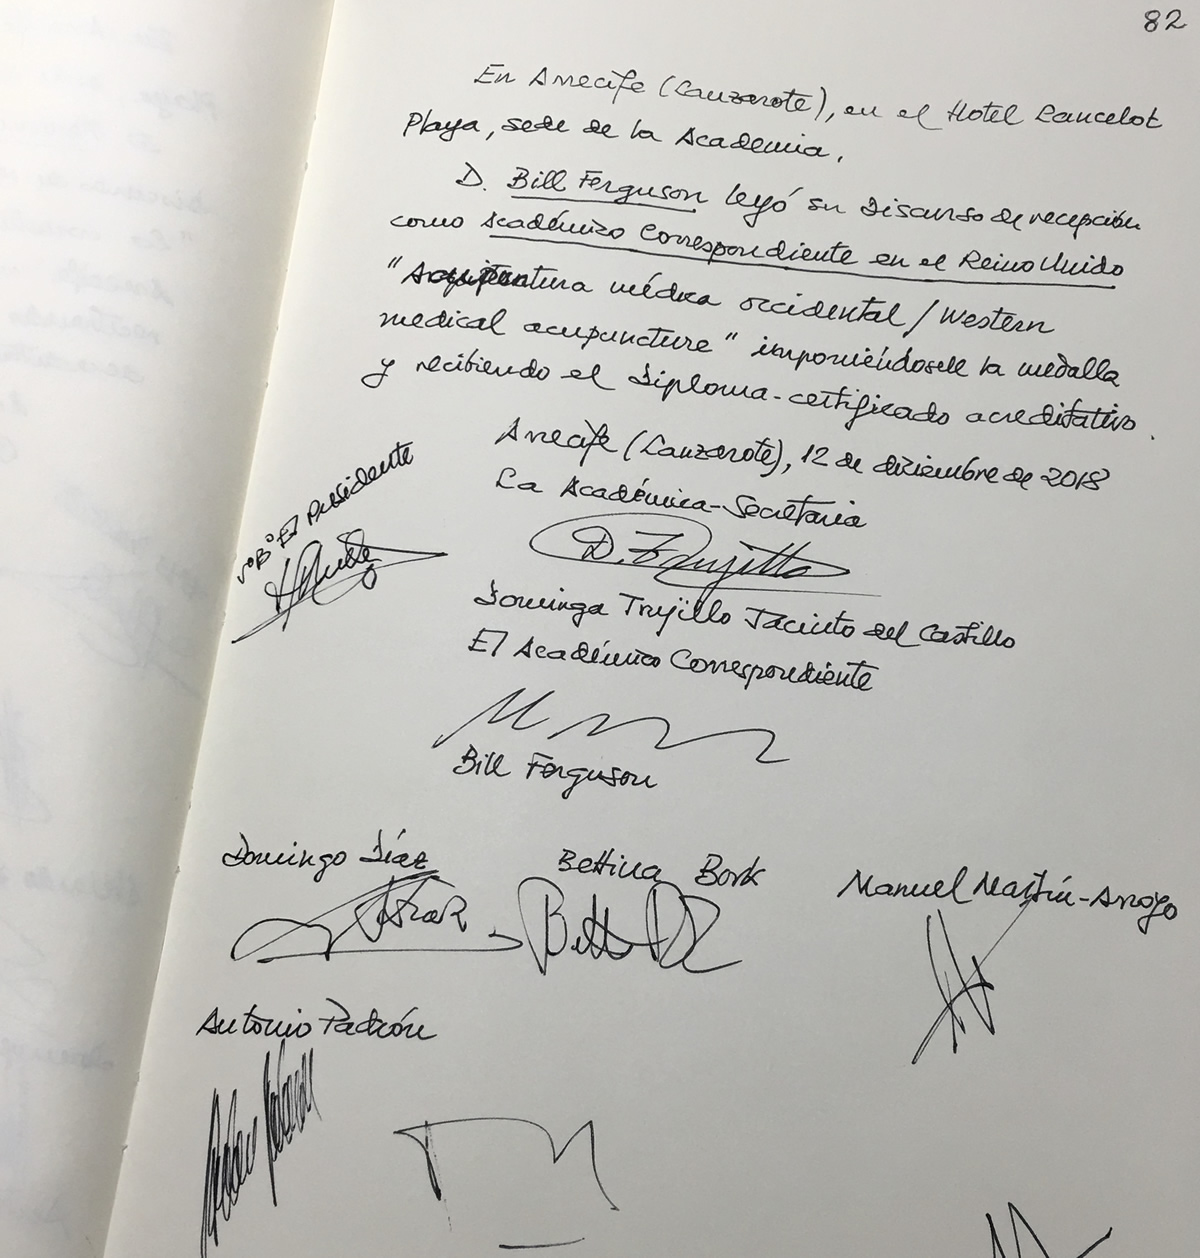 82
En Arrecife (Lanzarote), en el Hotel Lancelot
Playa, sede de la Academia.
D. Bill Ferguson leyó su Discurso de recepción
como Académico Correspondiente en el Reino Unido
médica occidental / Western
medical acupuncture" imponiéndosele la medalla
y recibiendo el Diploma-certificado acreditativo.
Arrecife (Lanzarote), 12 de diciembre de 2018
La Académica-Secretaria
VºBº El Presidente
D. Trujillo
Dominga Trujillo Jacinto del Castillo
El Académico Correspondiente
Bill Ferguson
Domingo Díaz
Bettina Bork
Manuel Martín-Arroyo
Antonio Padrón